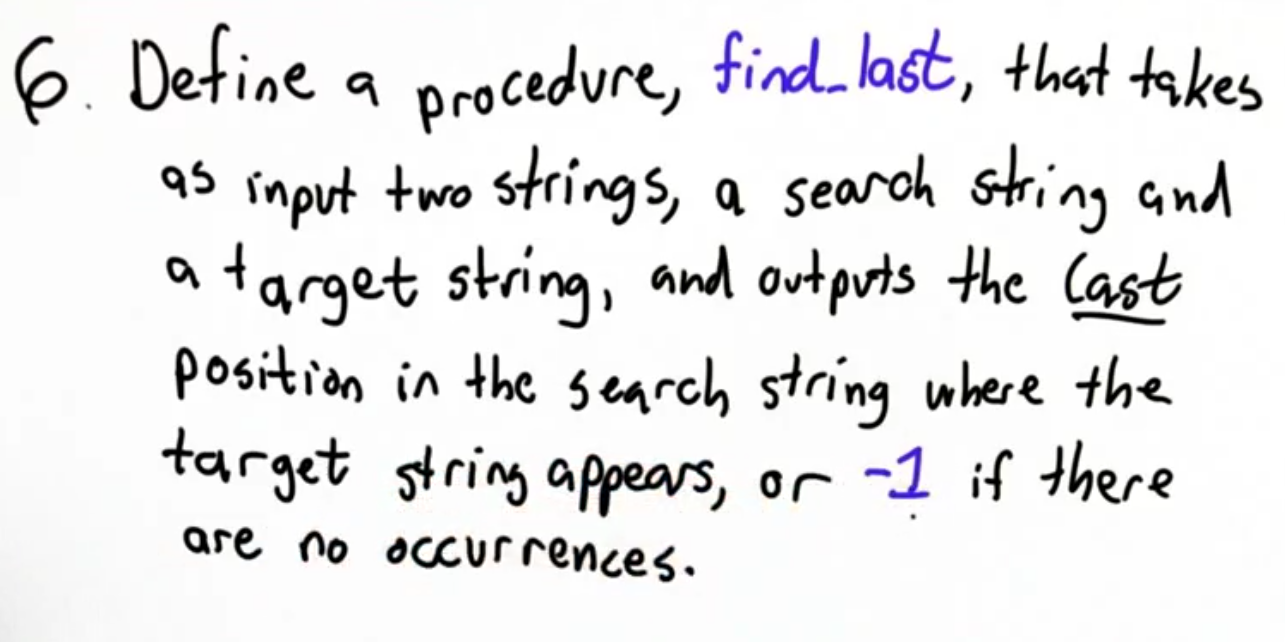 6. Define a procedure, find_last, that takes
as input two strings, a search string and
a target string, and outputs the last
position in the search string where the
target string appears, or -1 if there
are no occurrences.